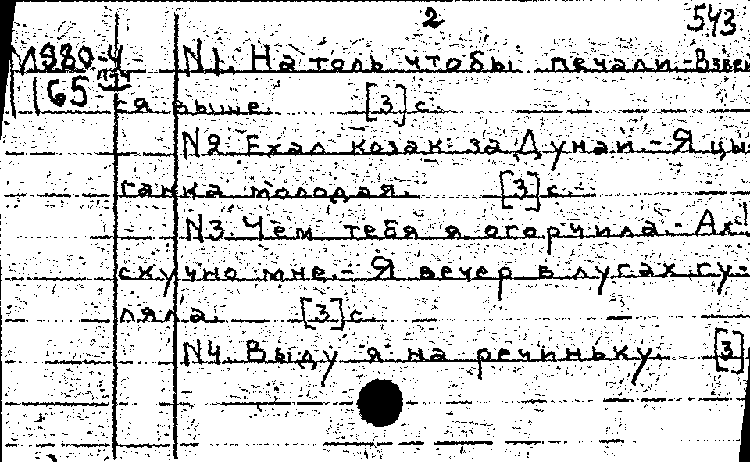 2 543
М980-4 N1. На толь чтобы печали.-Взвей
165 ся выше. [3] с.
N2. Ехал козак за Дунай.-Я цы
ганка молодая. [3] с.
N3. Чем тебя я огорчила.-Ах!
скучно мне.-Я вечер в лугах гу-
ляла. [3] с.
N4. Выду я на речиньку. [3]